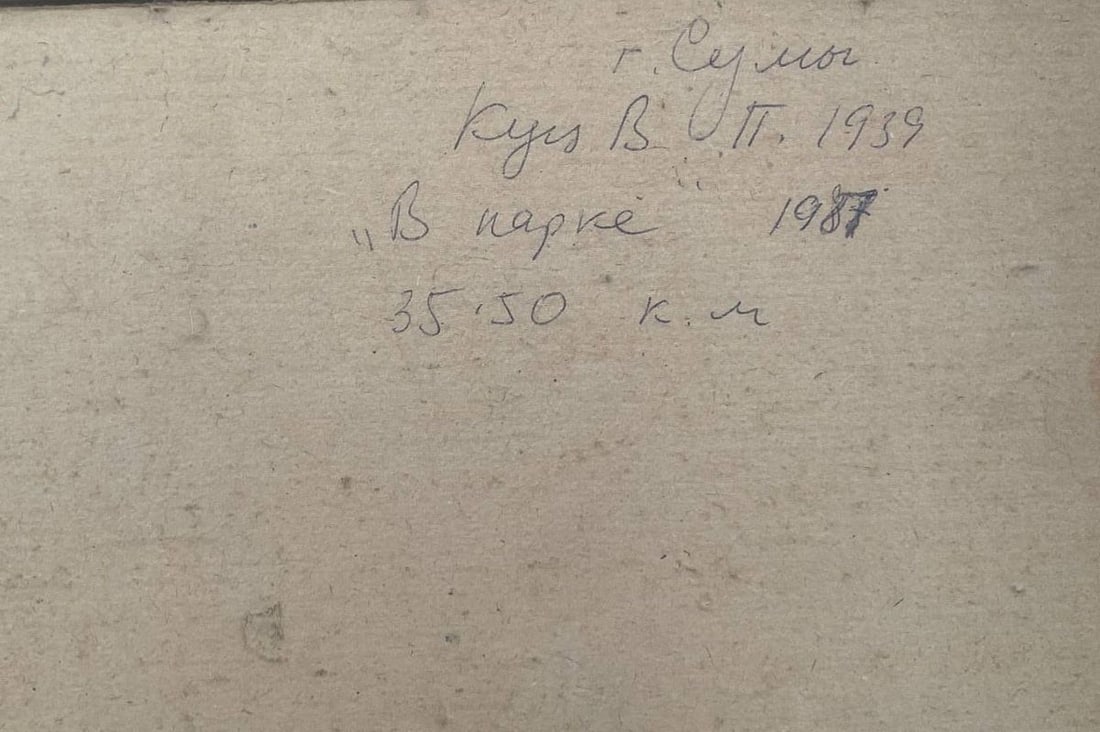 г. Сумы
В П. 1939
„В парке" 1987
35·50 к.м